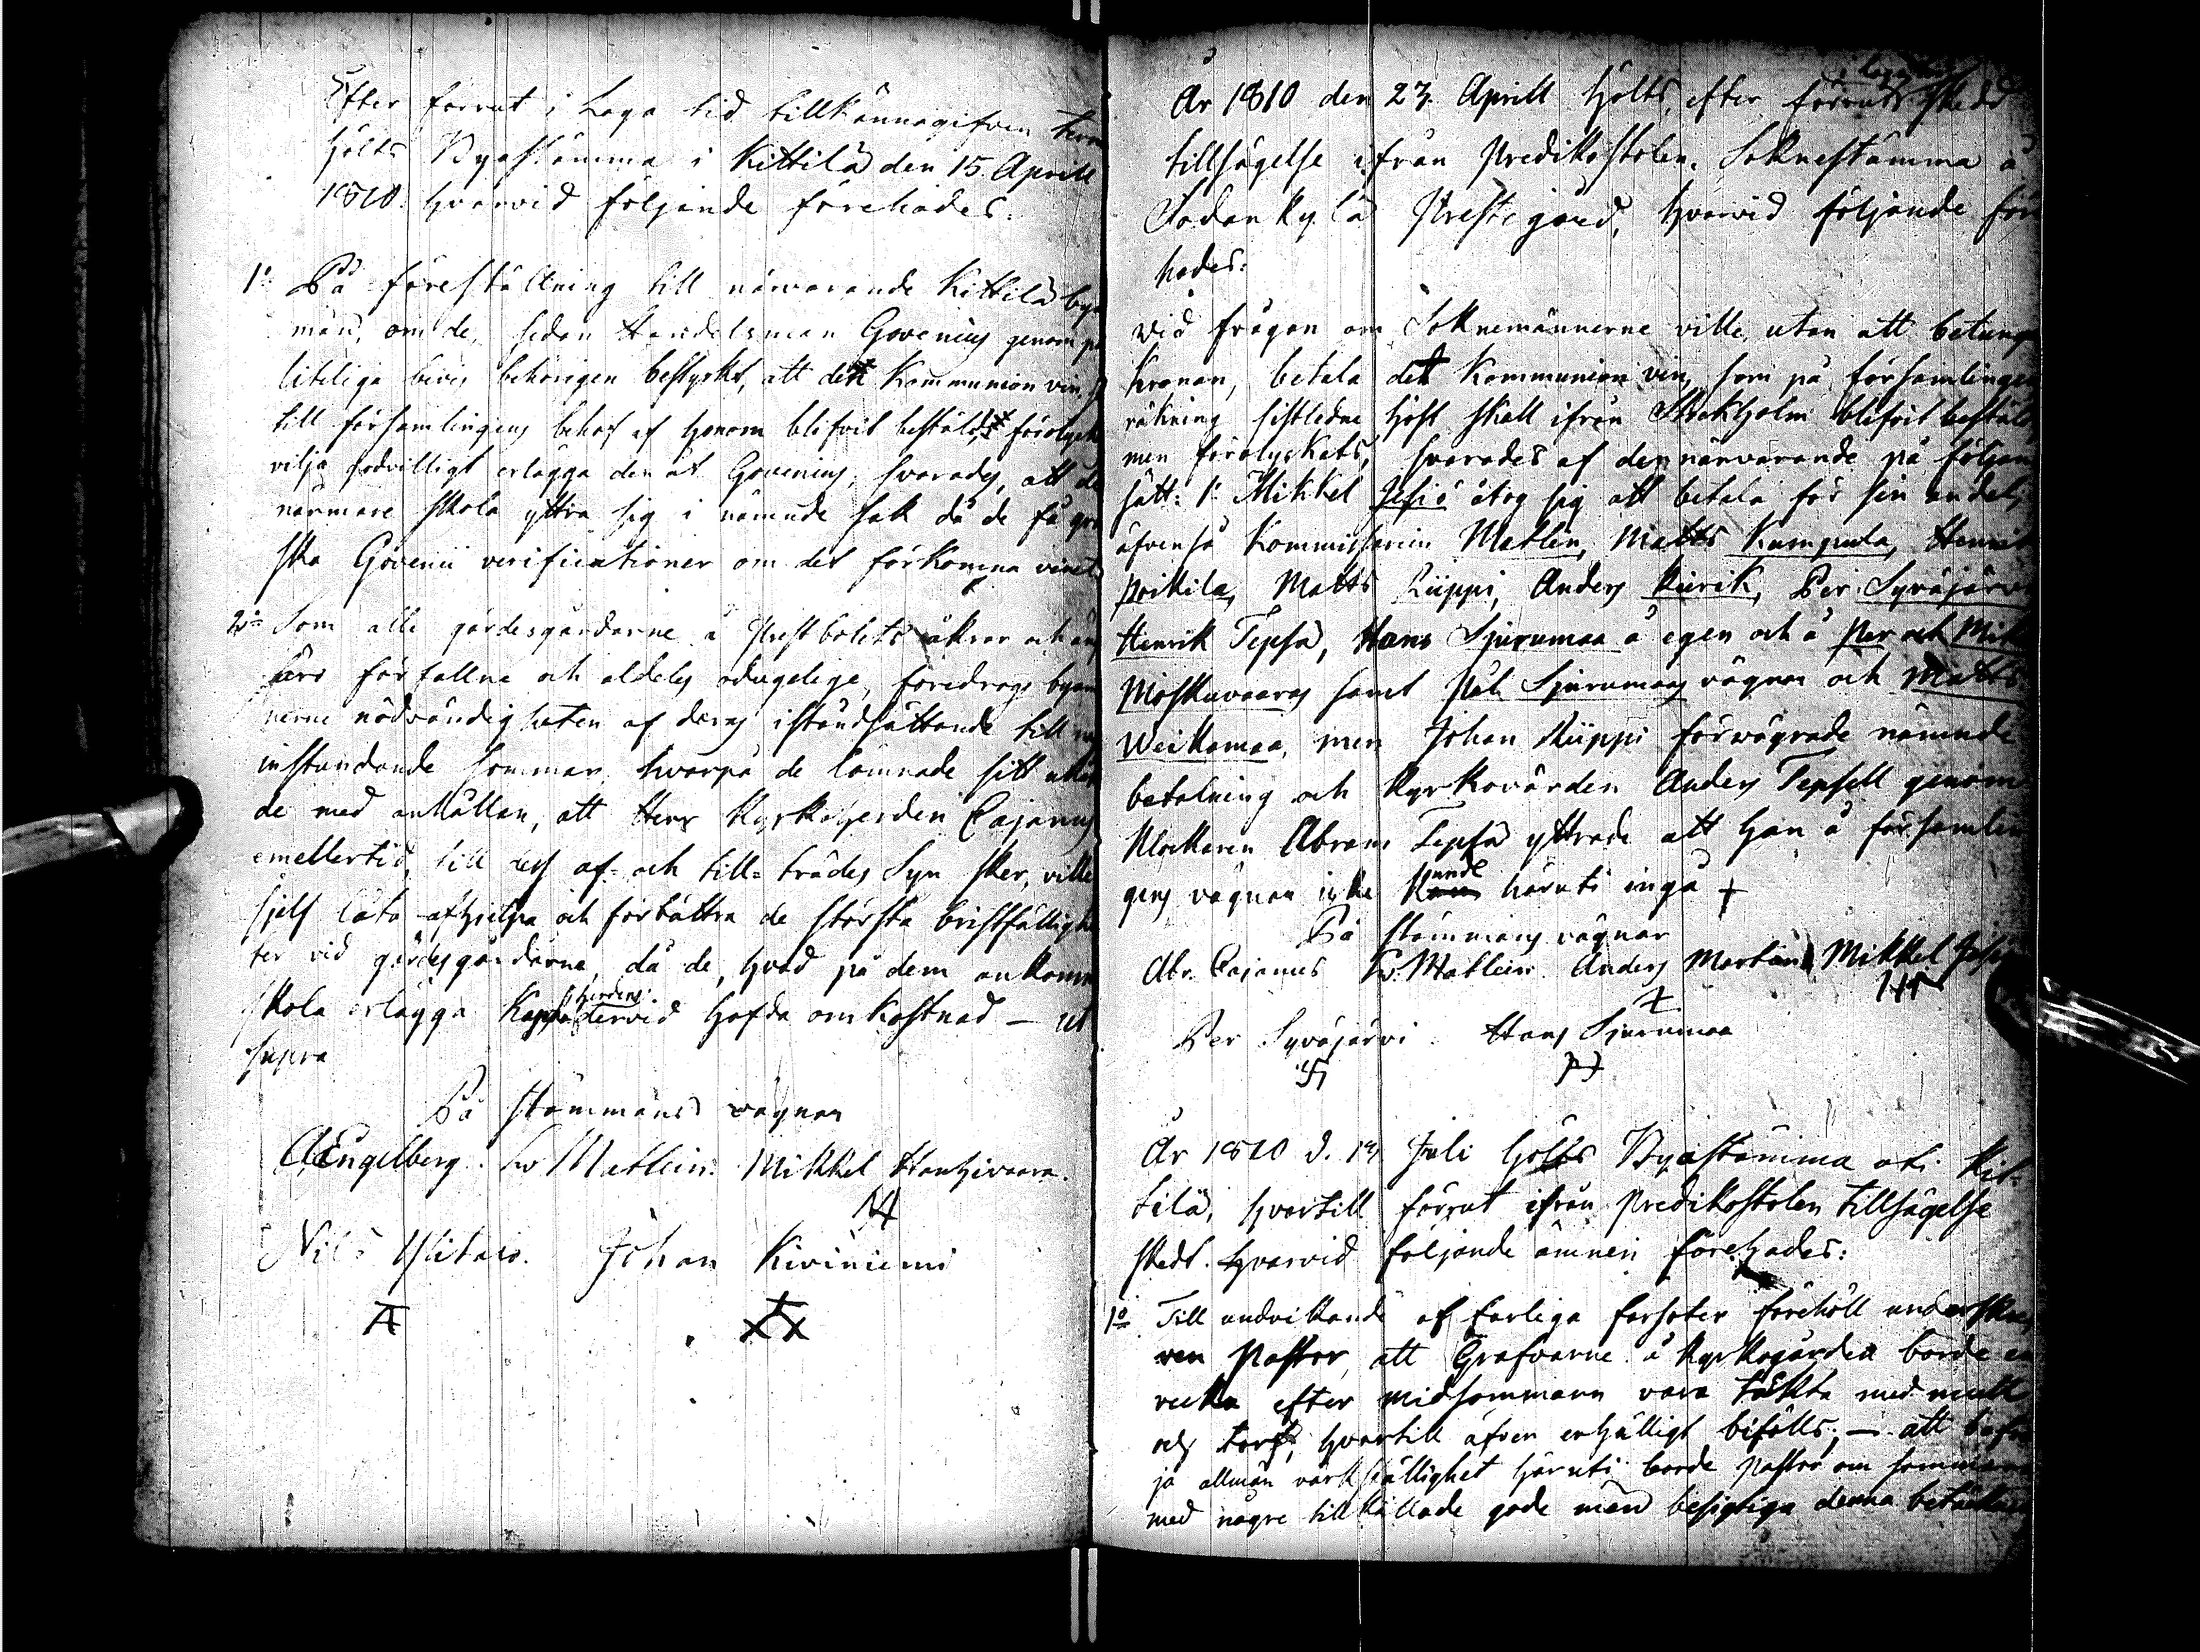 Efter forrut i Laga tid tillkännagifven
hölts Byastämma i Kittilä den 15. Aprill
1810. hvarvid följande förehades.
1:o På föreställning till närvarande Kittilä bya
män, om de, sedan Handelsman Govenius genom på
liteliga bevis behörigen bestyrkt, att dett Kommunion vin,
till församlingens behof af honom blifvit bestäldt, förolyckats
vilja godvilligt erlägga den åt Govenius, svarades, att de
närmare skola yttra sig i nämnde sak då de få gran
ska Govenii verificationer om det förkomna vinet
2:o Som alla gärdesgårdarne å Prestbolets åkrar och äng
äro förfallne och aldeles odugelige, föredrogs byam
nerne nödvändigheten af deras iståndsättande till
instundande sommar, hvarpå de lämnade sitt
de med anhållan, att Herr Kyrkoherden Cajanus
emellertid, till dess af- och till-trädes Syn sker, ville
sjelf låta afhjelpa och förbättra de största bristfällighe
ter vid gärdesgårdarne, då de, hvad på dem ankomm
skola erlägga Kyrkoherdens dervid hafda omkostnad – ut
supra
På stämmans vägnar
AEngelberg. Sv Matlein. Mikkel Hanhivaara.
Nils Ylitalo. Johan Kiviniemi
År 1810 den 23. Aprill hölts, efter förrut i laga tid skedd
tillsägelse ifrån Predikostolen, Soknestämma å
Sodankylä Prestegård, hvarvid följande före
hades:
Vid frågan om Soknemännerne ville, utan att betunga
Kronan, betala det Kommunion vin, som på församlingens
räkning sistledne höst skall ifrån Stockholm blifvit bestäldt
men förolyckats, svarades af den närvarande på följande
sätt: 1:o Mikkel Jesiö åtog sig att betala för sin andel,
äfvenså Kommissarien Matlin, Matts Kumpula, Henrik
Poikila, Matts Riippi, Anders Kurik, Per Syväjärvi
Henrik Tepsa, Hans Sjurumaa å egen och å Per och Mik
Moskuvaaras samt Påhl Sjurumaas vägnar och Matts
Weikamaa, men Johan Riippi förvägrade nämnde
betalning och Kyrkovärden Anders Tepsell genom
Klockaren Abram Tepsa yttrade att han å församlin
gens vägnar icke kunde häruti ingå
På stämmans vägnar
Abr. Cajanus Sv. Matlein Anders Martin Mikkel Jesiö
Per Syväjärvi Hans Sjurumaa
År 1810 d. 19 Juli hölts Byastämma uti Kit-
tilä, hvartill förrut ifrån Predikostolen tillsägelse
skedt. hvarvid följande ämnen förehades:
1:o Till undvikande af farliga farsoter förehöll underskre
ven Pastor, att Grafvarne å Kyrkogården borde en
vecka efter midsommaren vara täckta med mull
och torf, hvartill äfven enhälligt bifölls; – att
ja allmän värkställighet häruti borde Pastor om sommaren
med någre tillkallade gode män besigtiga denna